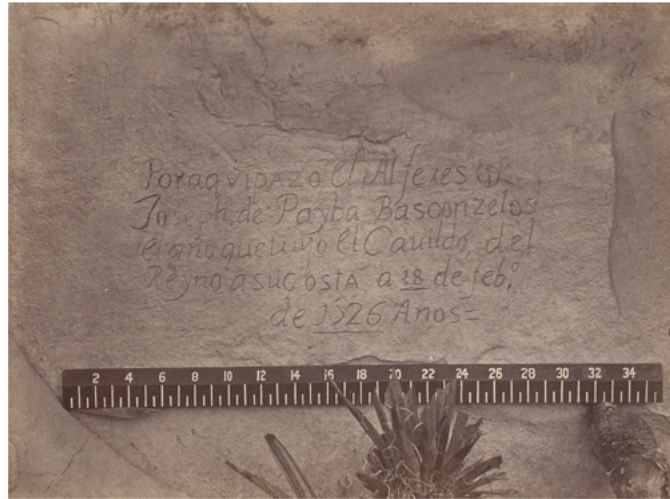 Por aqvi pazo el Alferes Dn
Joseph de Payba Basconzelos
el año que tuvo el Cauildo del
Reyno a su costa a 18 de feb.o
de 1526 Años=
2 4 6 8 10 12 14 16 18 20 22 24 26 28 30 32 34